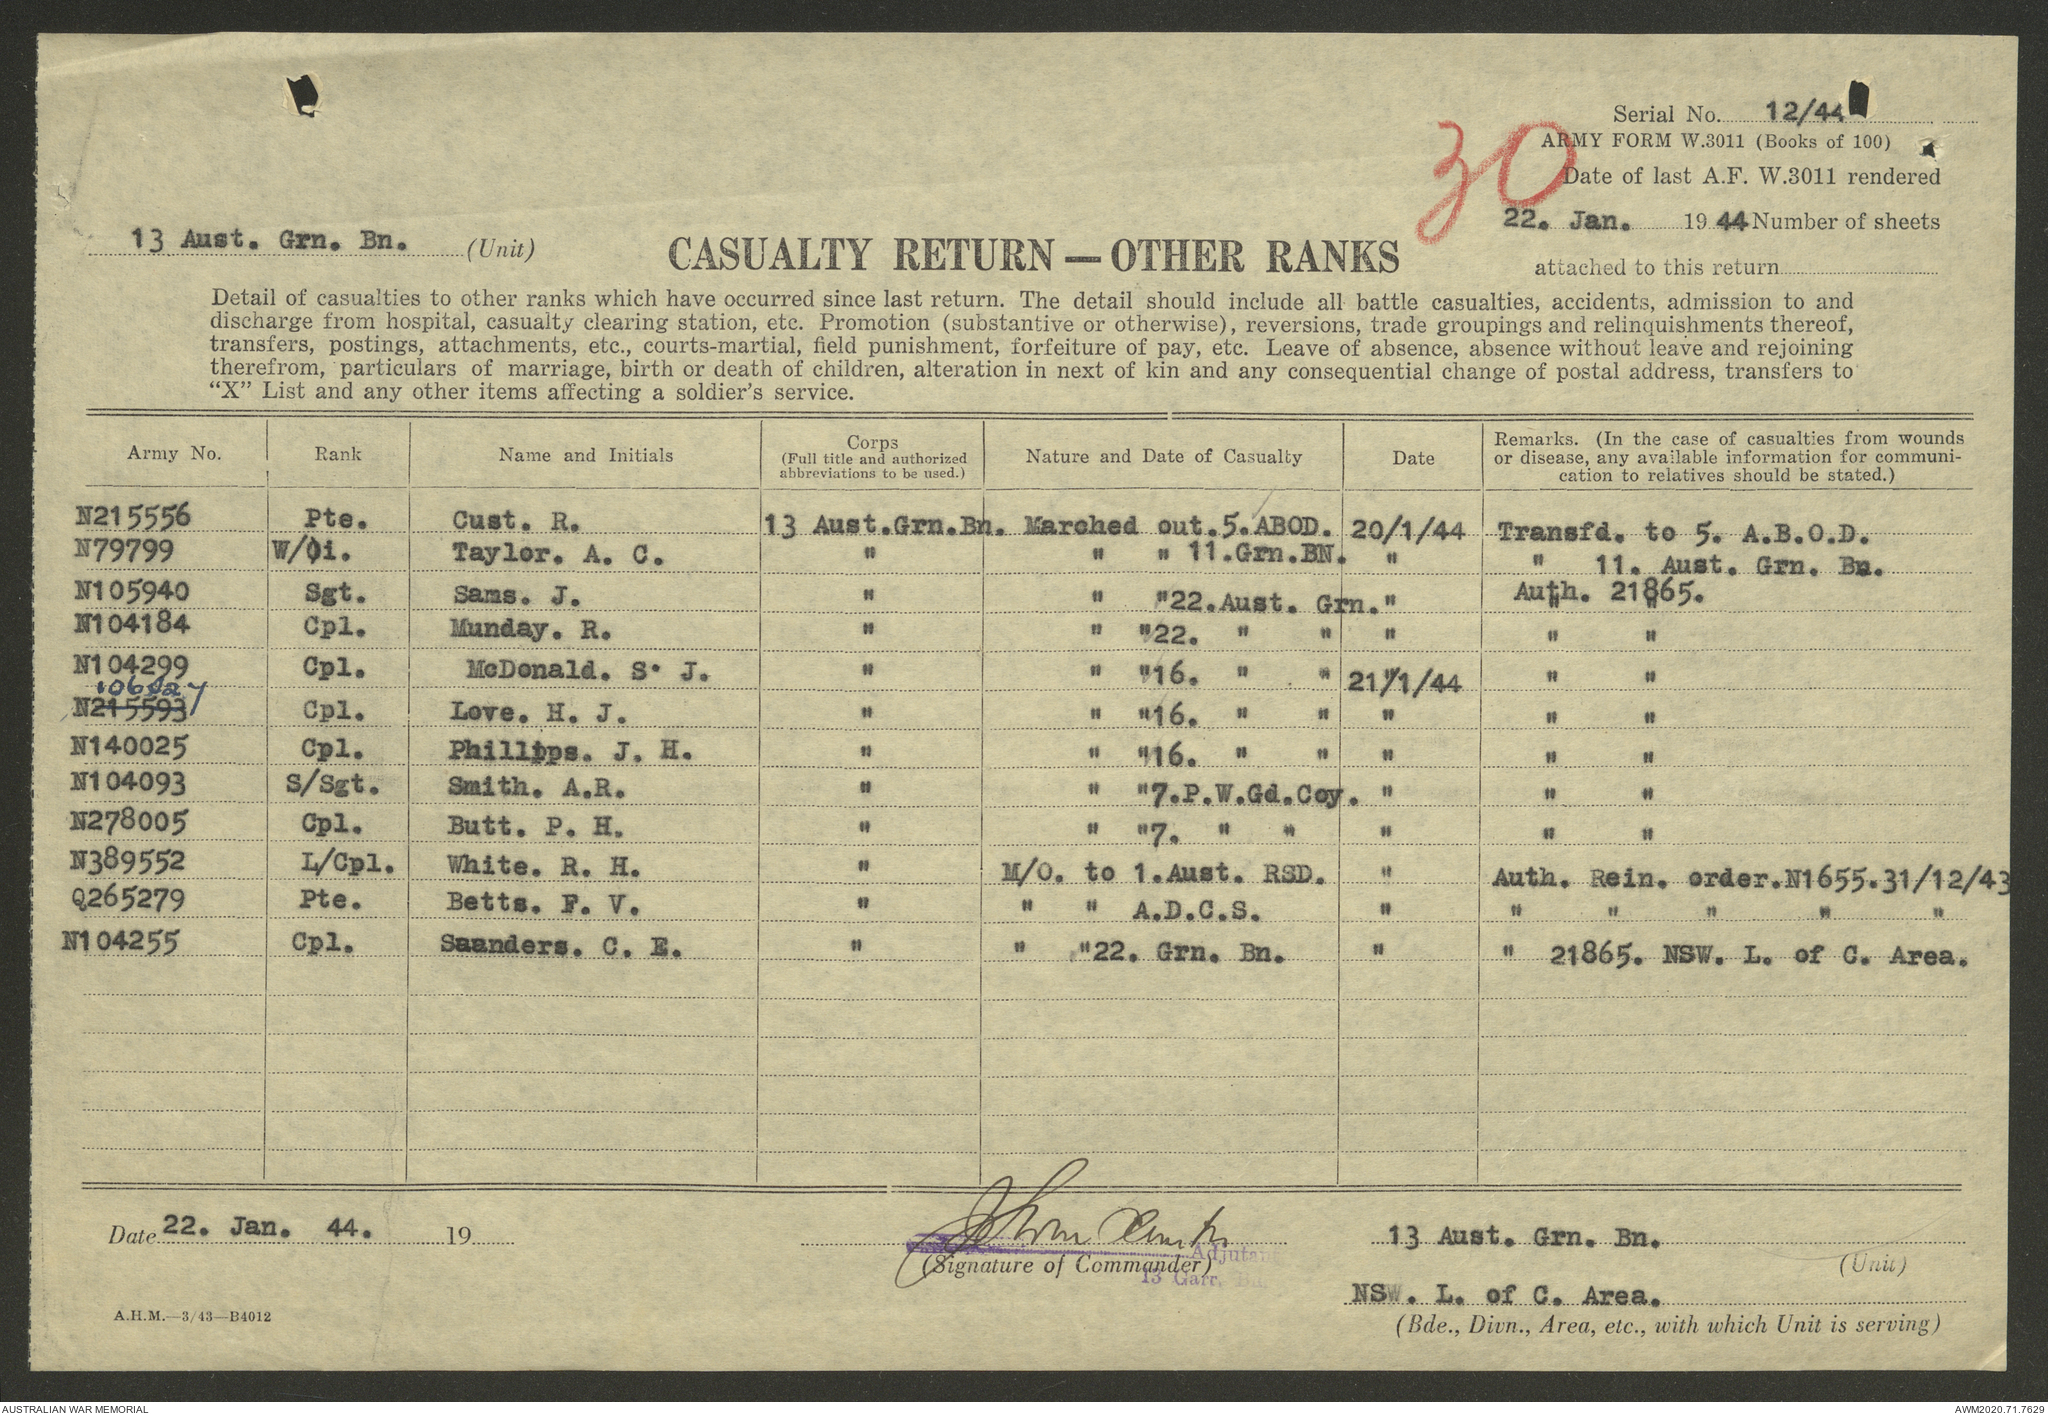 Serial No. 12/44
30
ARMY FORM W.3011 (Books of 100)
Date of last A.F. W.3011 rendered
22. Jan. 1944 Number of sheets
attached to this return
13 Aust. Grn. Bn. (Unit)
CASUALTY RETURN — OTHER RANKS
Detail of casualties to other ranks which have occurred since last return. The detail should include all battle casualties, accidents, admission to and
discharge from hospital, casualty clearing station, etc. Promotion (substantive or otherwise), reversions, trade groupings and relinquishments thereof,
transfers, postings, attachments, etc., courts-martial, field punishment, forfeiture of pay, etc. Leave of absence, absence without leave and rejoining
therefrom, particulars of marriage, birth or death of children, alteration in next of kin and any consequential change of postal address, transfers to
"X" List and any other items affecting a soldier's service.
Army No. Rank Name and Initials Corps (Full title and authorized abbreviations to be used.) Nature and Date of Casualty Date Remarks. (In the case of casualties from wounds or disease, any available information for communication to relatives should be stated.)
N215556 Pte. Cust. R. 13 Aust.Grn.Bn. Marched out.5.ABOD. 20/1/44 Transfd. to 5. A.B.O.D.
N79799 W/Oi. Taylor. A. C. " " " 11.Grn.BN. " " 11. Aust. Grn. Bn.
N105940 Sgt. Sams. J. " " "22.Aust. Grn. " Auth. 21865.
N104184 Cpl. Munday. R. " " "22. " " " " "
N104299 Cpl. McDonald. S. J. " " "16. " " 21/1/44 " "
N215593 Cpl. Love. H. J. " " "16. " " " " "
N140025 Cpl. Phillipps. J. H. " " "16. " " " " "
N104093 S/Sgt. Smith. A.R. " " "7.P.W.Gd.Coy. " " "
N278005 Cpl. Butt. P. H. " " "7. " " " " "
N389552 L/Cpl. White. R. H. " M/O. to 1.Aust. RSD. " Auth. Rein. order.N1655.31/12/43
Q265279 Pte. Betts. F. V. " " " A.D.C.S. " " " " " "
N104255 Cpl. Saanders. C. E. " " "22. Grn. Bn. " " 21865. NSW. L. of C. Area.
Date 22. Jan. 44. 19
(Signature of Commander)
Adjutant
13 Garr. Bn.
13 Aust. Grn. Bn.
(Unit)
NSW. L. of C. Area.
(Bde., Divn., Area, etc., with which Unit is serving)
A.H.M.—3/43—B4012
AUSTRALIAN WAR MEMORIAL
AWM2020.71.7629